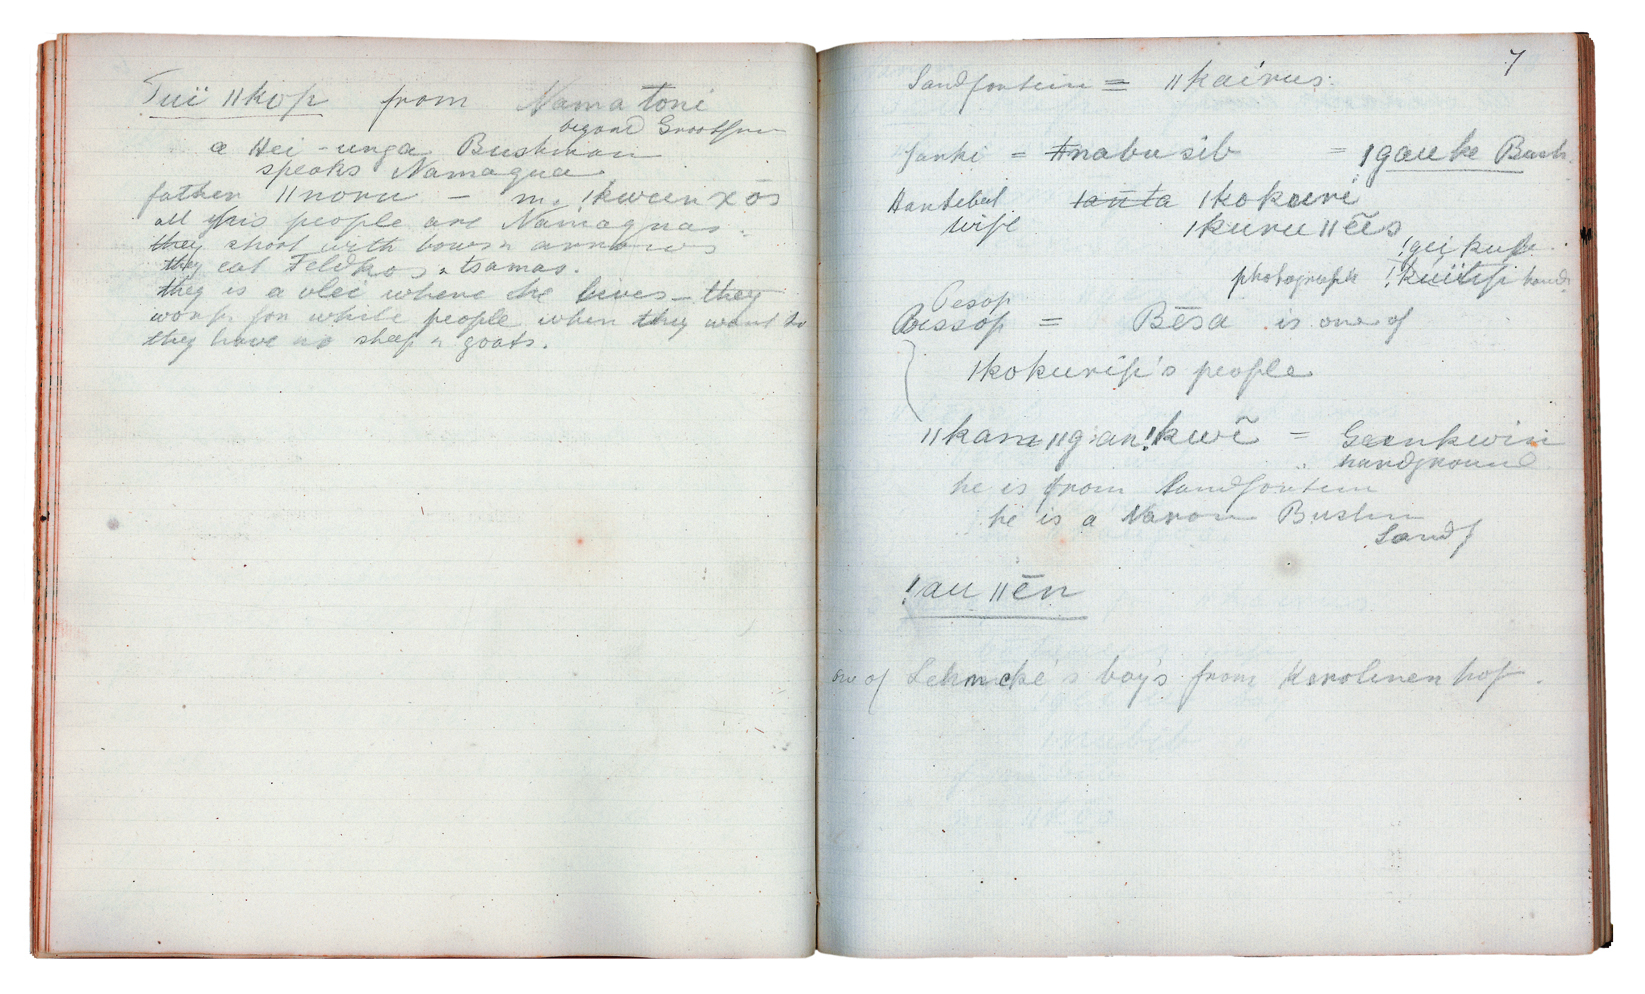 Tuï ǁkop from Namatoni
beyond Grootfn
a Hei-unga Bushman
speaks Namaqua
father ǁnoru – m. ǃkwunxōs
all his people are Namaquas.
they shoot with bows & arrows
they eat Feldkos & tsamas.
they is a vlei where he lives – they
work for white people when they want to
they have no sheep & goats.
7
Sandfontein = ǁkaírus.
Janki = ǂnabusib = ǀgauke Bush.
Hantebet ǀkokuri
wife ǀkuruǁēis
photograph
Oesop
Bessop = Bēsa is one of
ǀkokurib's people
ǁkanǁganǃkwĩ = Geenkwin
hardground
he is from Sandfontein
he is a Naron Bushm
Sandf
ǃauǁēn
one of Lehmcke's boys from Karolinenhof.